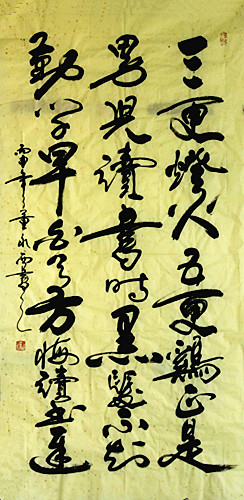 三更燈火五更鷄正是
男兒讀書時黑髮不知
勤学早白首方悔讀书遲
丙申年